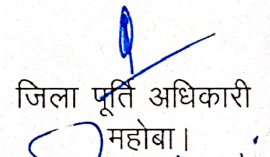 जिला पूर्ति अधिकारी
महोबा।